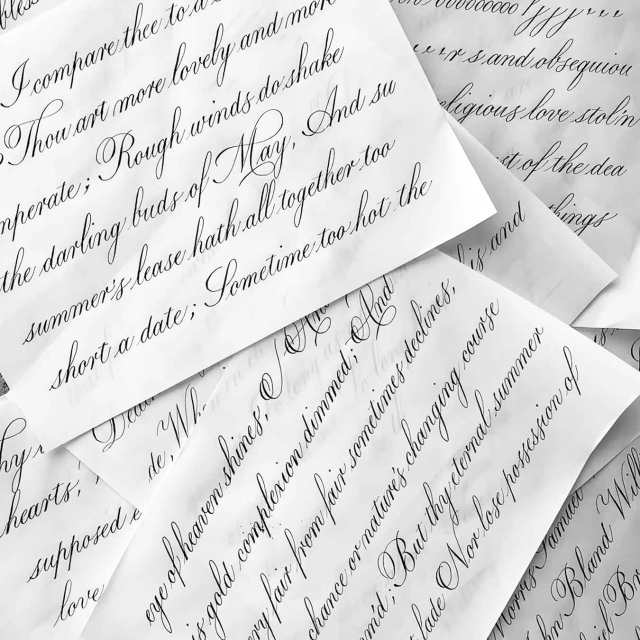 I compare thee to a
Thou art more lovely and more
mperate; Rough winds do shake
the darling buds of May, And su
summer's lease hath all together too
short a date; Sometime too hot the
eye of heaven shines,
is gold complexion dimmed; And
ery fair from fair sometimes declines,
chance or nature's changing course
m'd; But thy eternal summer
fade Nor lose possession of
s and obsequiou
eligious love stolin
t of the dea
things
is and
de, Wh
hy
hearts,
supposed
love
Morris
hn Bland Will
iel Br